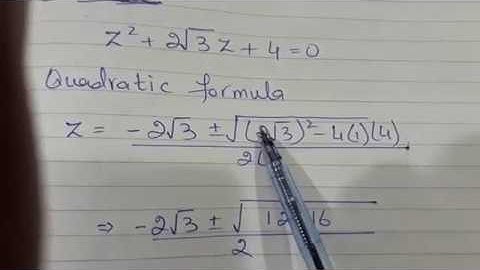 z² + 2√3 z + 4 = 0
Quadratic formula
z = -2√3 ± √(2√3)² - 4(1)(4) / 2(
⇒ -2√3 ± √12 16 / 2